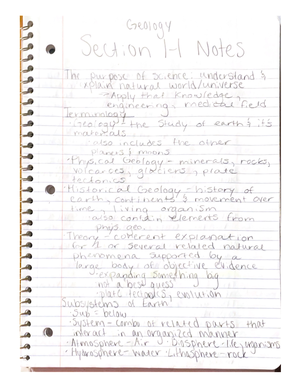 Geology
Section 1-1 Notes
The purpose of science: understand &
explain natural world/universe
-Apply that knowledge,
engineering, medical field
Terminology
Geology - the study of earth & its
materials
-also includes the other
planets & moons
-Physical Geology - minerals, rocks,
volcanoes, glaciers, plate
tectonics
-Historical Geology - history of
Earth, continents & movement over
time, living organism
-also contain elements from
phys. geo.
Theory - coherent explanation
for 1 or several related natural
phenomena supported by a
large body of objective evidence
-expanding something
not a best guess
plate tectonics, evolution
Subsystems of Earth
Sub = below
-System - combo of related parts that
interact in an organized manner
-Atmosphere - Air Biosphere - life/organisms
-Hydrosphere - water Lithosphere - rock